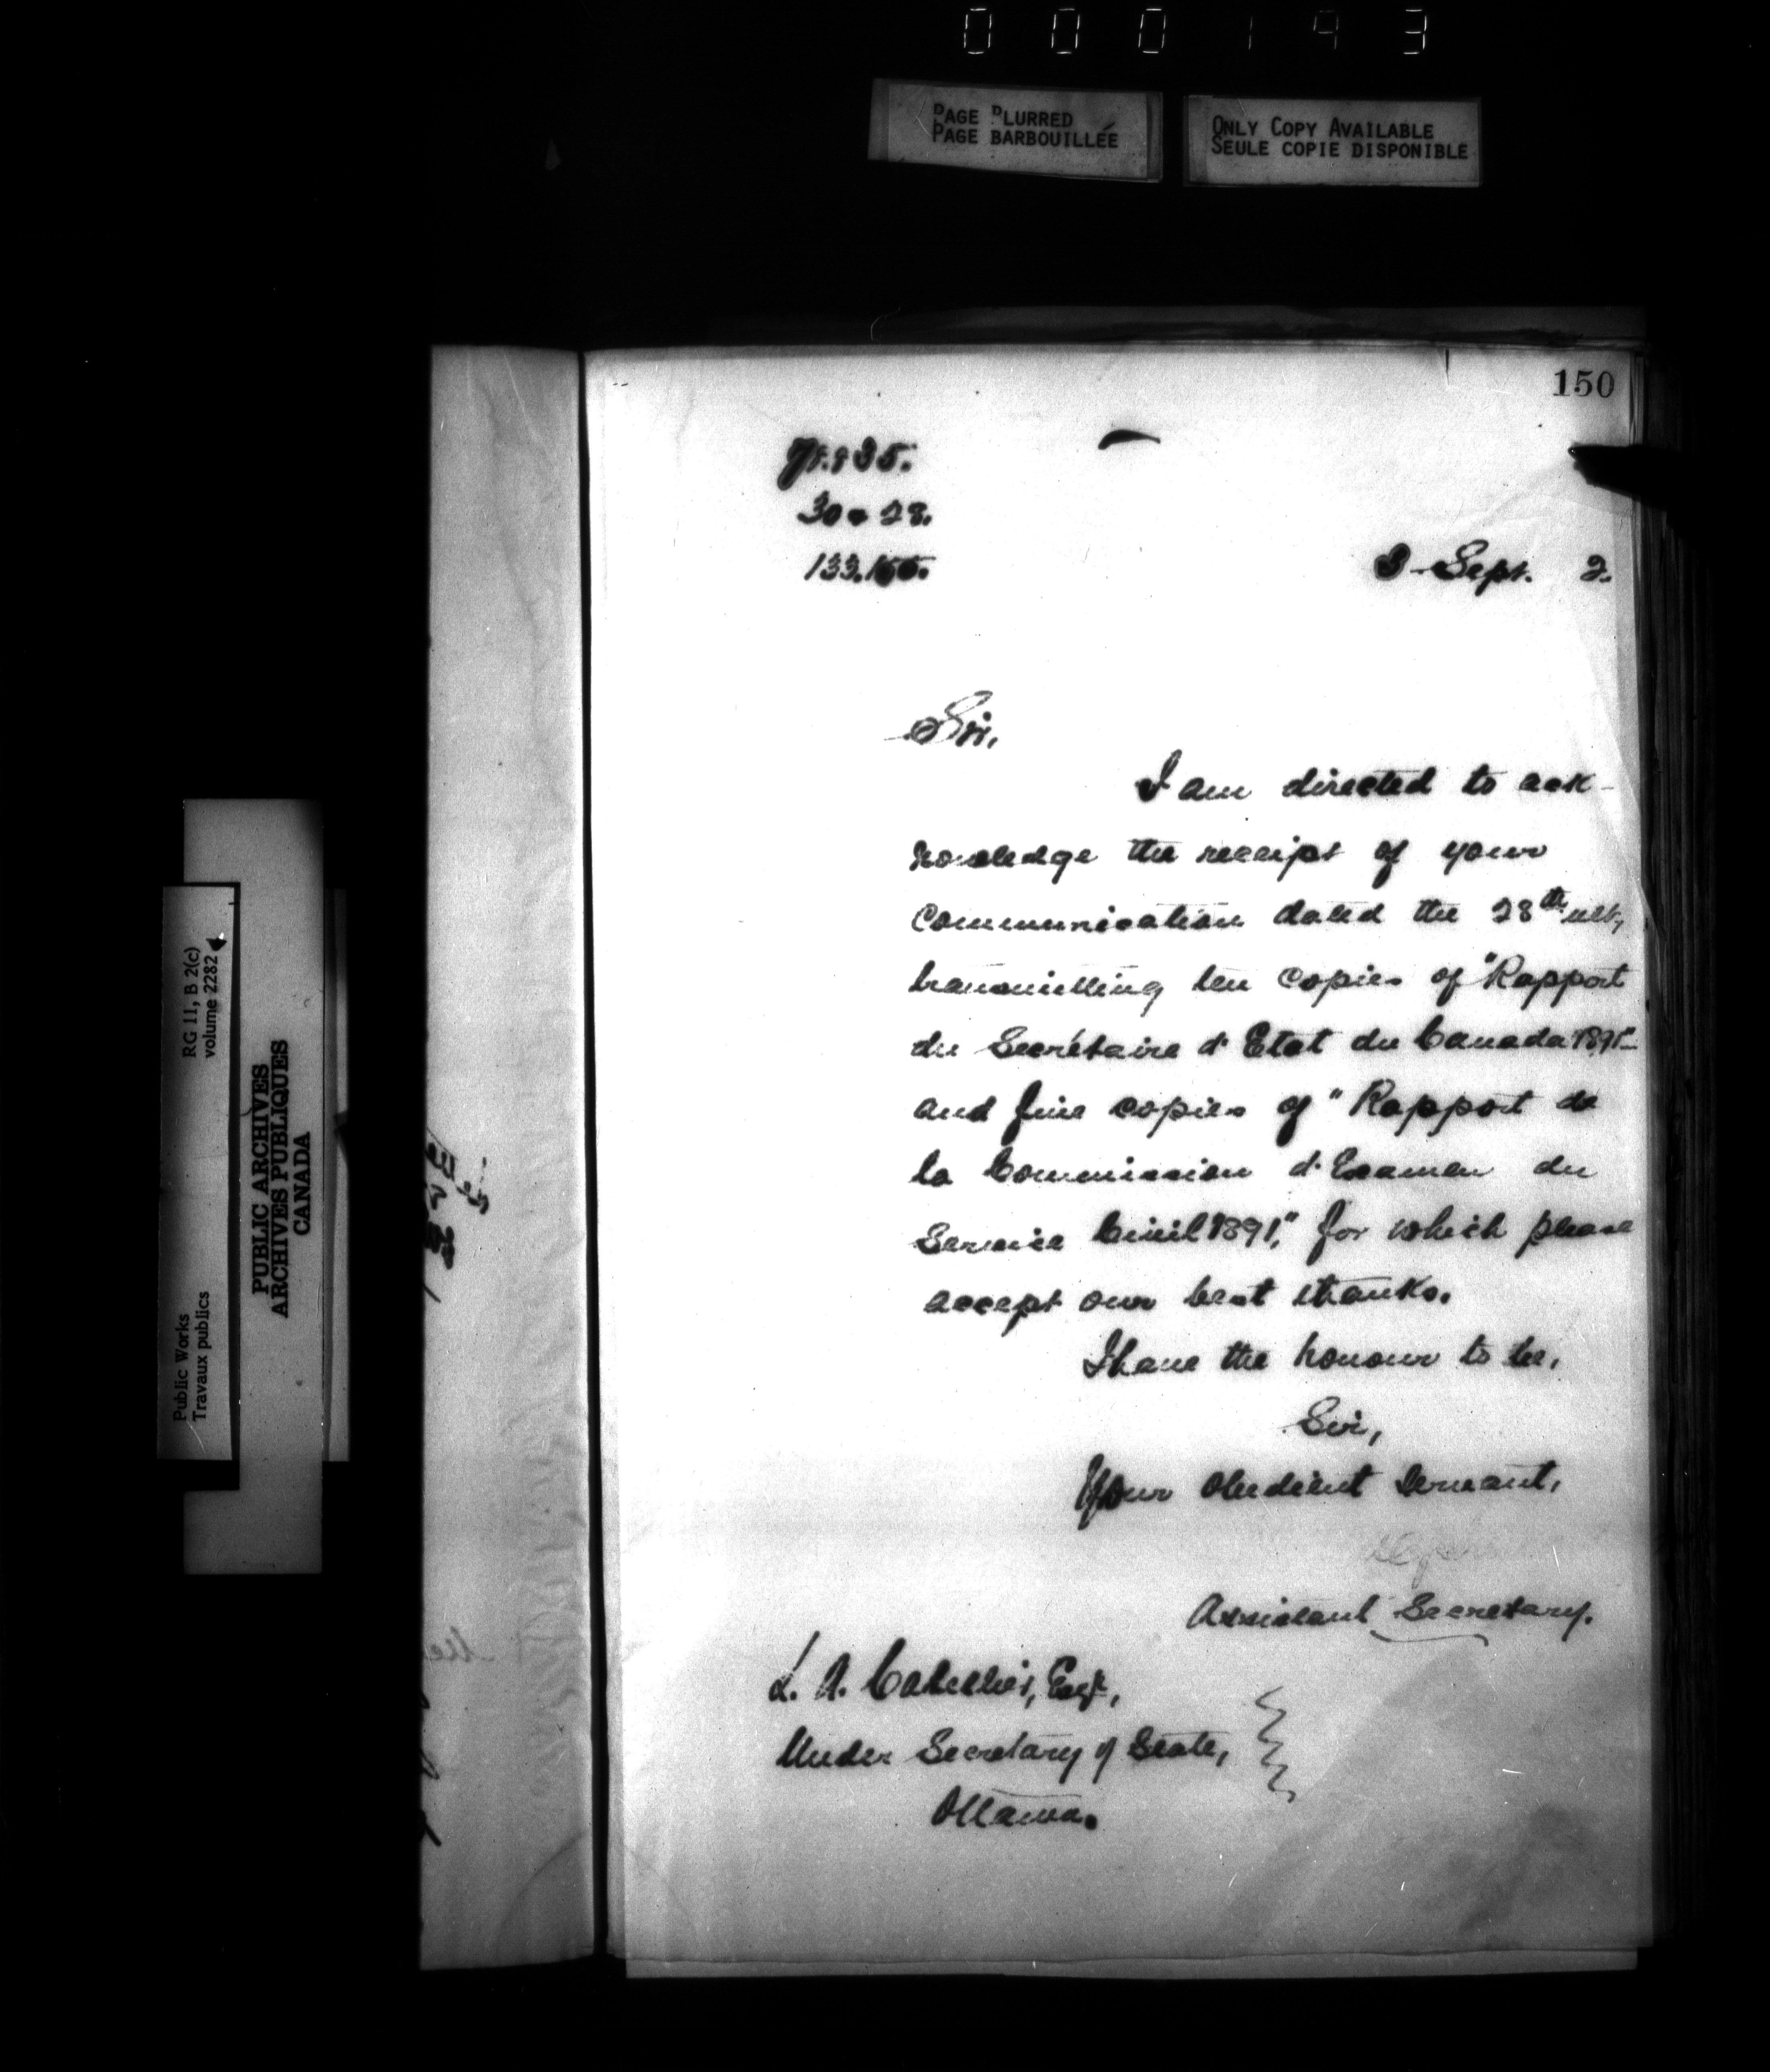 000193
PAGE BLURRED
PAGE BARBOUILLÉE
ONLY COPY AVAILABLE
SEULE COPIE DISPONIBLE
150
30 28.
133.
3 Sept. 2.
Sir,
I am directed to ack-
nowledge the receipt of your
communication dated the 28th ult.,
transmitting ten copies of "Rapport
du Secrétaire d'Etat du Canada 1891"
and five copies of "Rapport de
la Commission d'Examen du
Service Civil 1891," for which please
accept our best thanks.
I have the honour to be,
Sir,
Your obedient servant,
Assistant Secretary.
L. A. Catellier, Esq.,
Under Secretary of State,
Ottawa.
RG 11, B 2(c)
volume 2282
Public Works
Travaux publics
PUBLIC ARCHIVES
ARCHIVES PUBLIQUES
CANADA